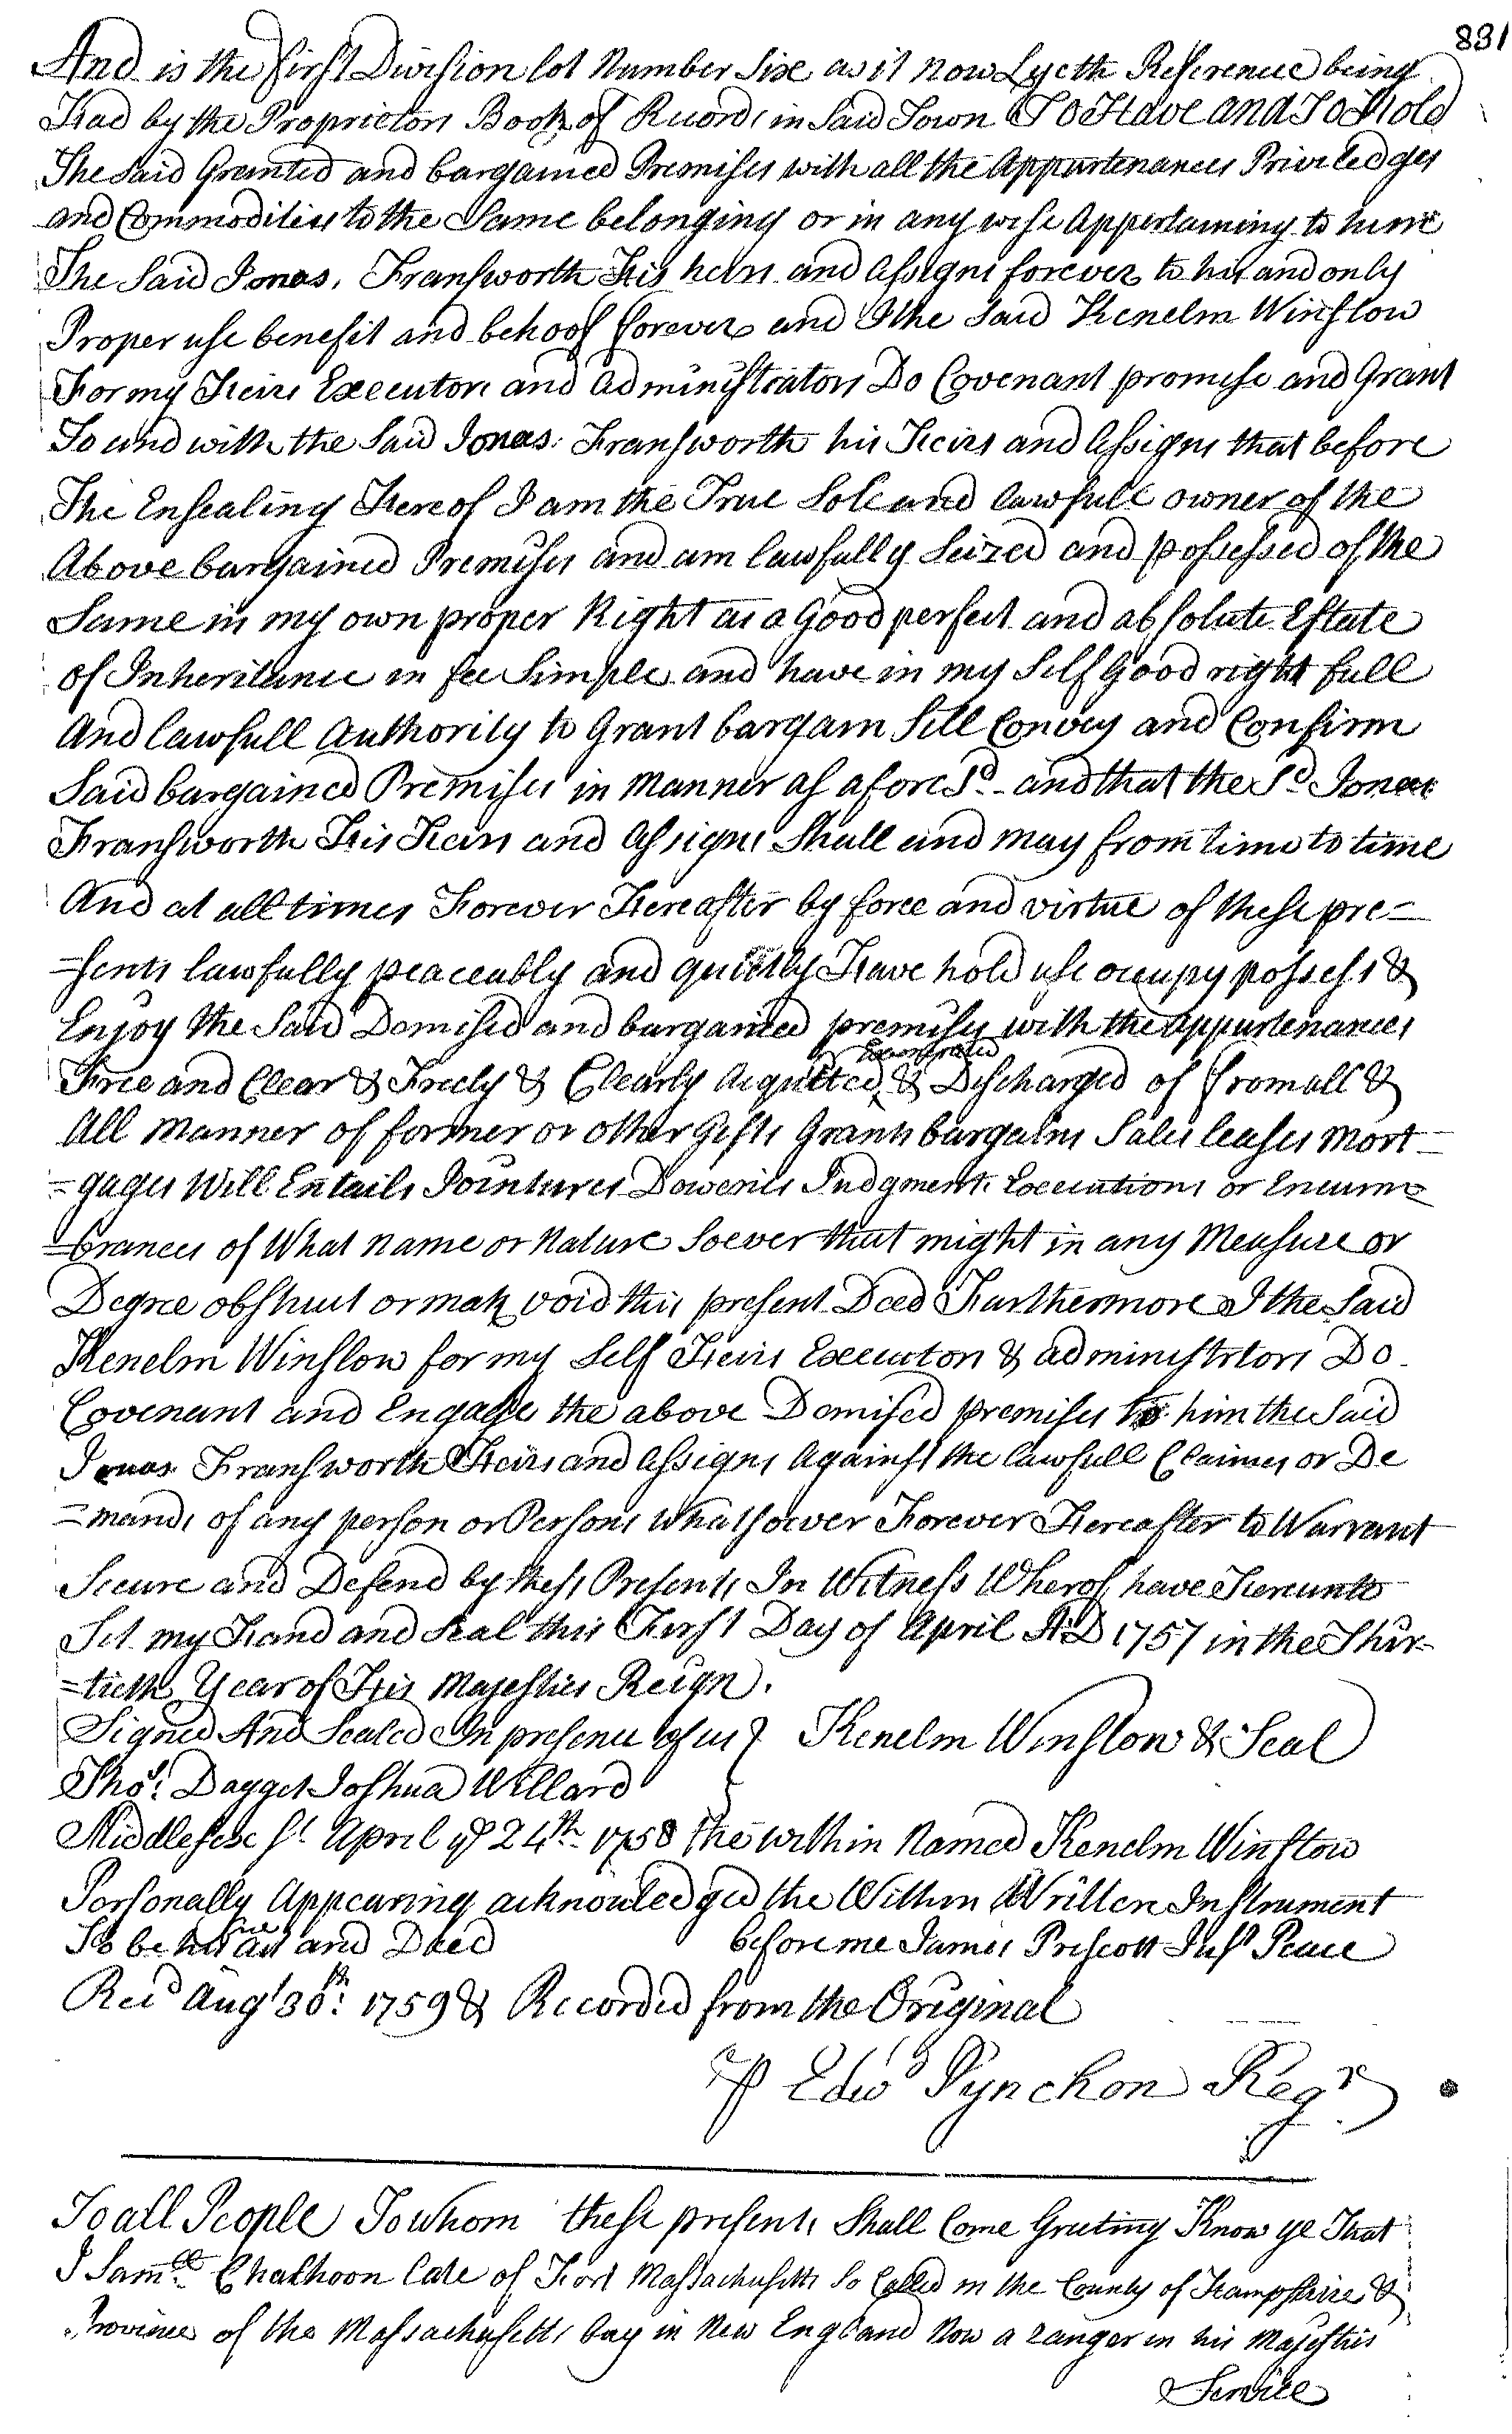 831
And is the first Division lot Number Six as it now Lyeth Reference being
Had by the Proprietors Book of Records in Said Town To Have and To Hold
The Said Granted and bargained Premises with all the Appurtenances Priviledges
and Commodities to the Same belonging or in any wise Appertaining to him
The Said Jonas Fransworth His heirs and Assigns forever to his and only
Proper use benefit and behoof forever and I the Said Kenelm Winslow
For my Heirs Executors and Administrators Do Covenant promise and Grant
To and with the Said Jonas Fransworth his Heirs and Assigns that before
The Ensealing Hereof I am the True Sole and lawfull owner of the
Above bargained Premises and am lawfully Seized and possessed of the
Same in my own proper Right as a Good perfect and absolute Estate
of Inheritance in fee Simple and have in my Self Good right full
And lawfull Authority to Grant bargain Sell Convey and Confirm
Said bargained Premises in Manner as afores^d and that the S^d Jonas
Fransworth His Heirs and Assigns Shall and may from time to time
And at all times Forever Hereafter by force and virtue of these pre=
=sents lawfully peaceably and quietly Have hold use occupy possess &
Enjoy the Said Demised and bargained premises with the Appurtenances
Exonerated
Free and Clear & Freely & Clearly Acquitted & Discharged of from all &
All Manner of former or other Gifts Grants bargains Sales leases Mort=
=gages Will Entails Jointures Doweries Judgments Executions or Encum=
=brances of What name or Nature Soever that might in any Measure or
Degree obstruct or mak void this present Deed Furthermore I the Said
Kenelm Winslow for my Self Heirs Executors & administrators Do
Covenant and Engage the above Demised premises to him the Said
Jonas Fransworth Heirs and Assigns Against the lawfull Claimes or De
=mands of any person or Persons Whatsoever Forever Hereafter to Warrant
Secure and Defend by these Presents In Witness Wherof have Hereunto
Set my Hand and Seal this First Day of April A:D 1757 in the Thir=
=tieth Year of His Majesties Reign.
Signed And Sealed In presence of us } Kenelm Winslow & Seal
Tho^s: Dagget Joshua Willard
Middlesex Ss April y^e 24^th 1758 the within Named Kenelm Winslow
Personally Appearing acknouledged the Within Written Instrument
free
To be his Act and Deed before me James Priscott Jus^t Peace
Rec^d Aug^t 30^th: 1759 & Recorded from the Original
P Edw^d Pynchon Reg^r
To all People To whom these presents Shall Come Greeting Know ye That
I Sam^ll Chalhoon late of Fort Massachusetts So Called in the County of Hampshire &
Province of the Massachusetts bay in New England Now a ranger in his Majesties
Service